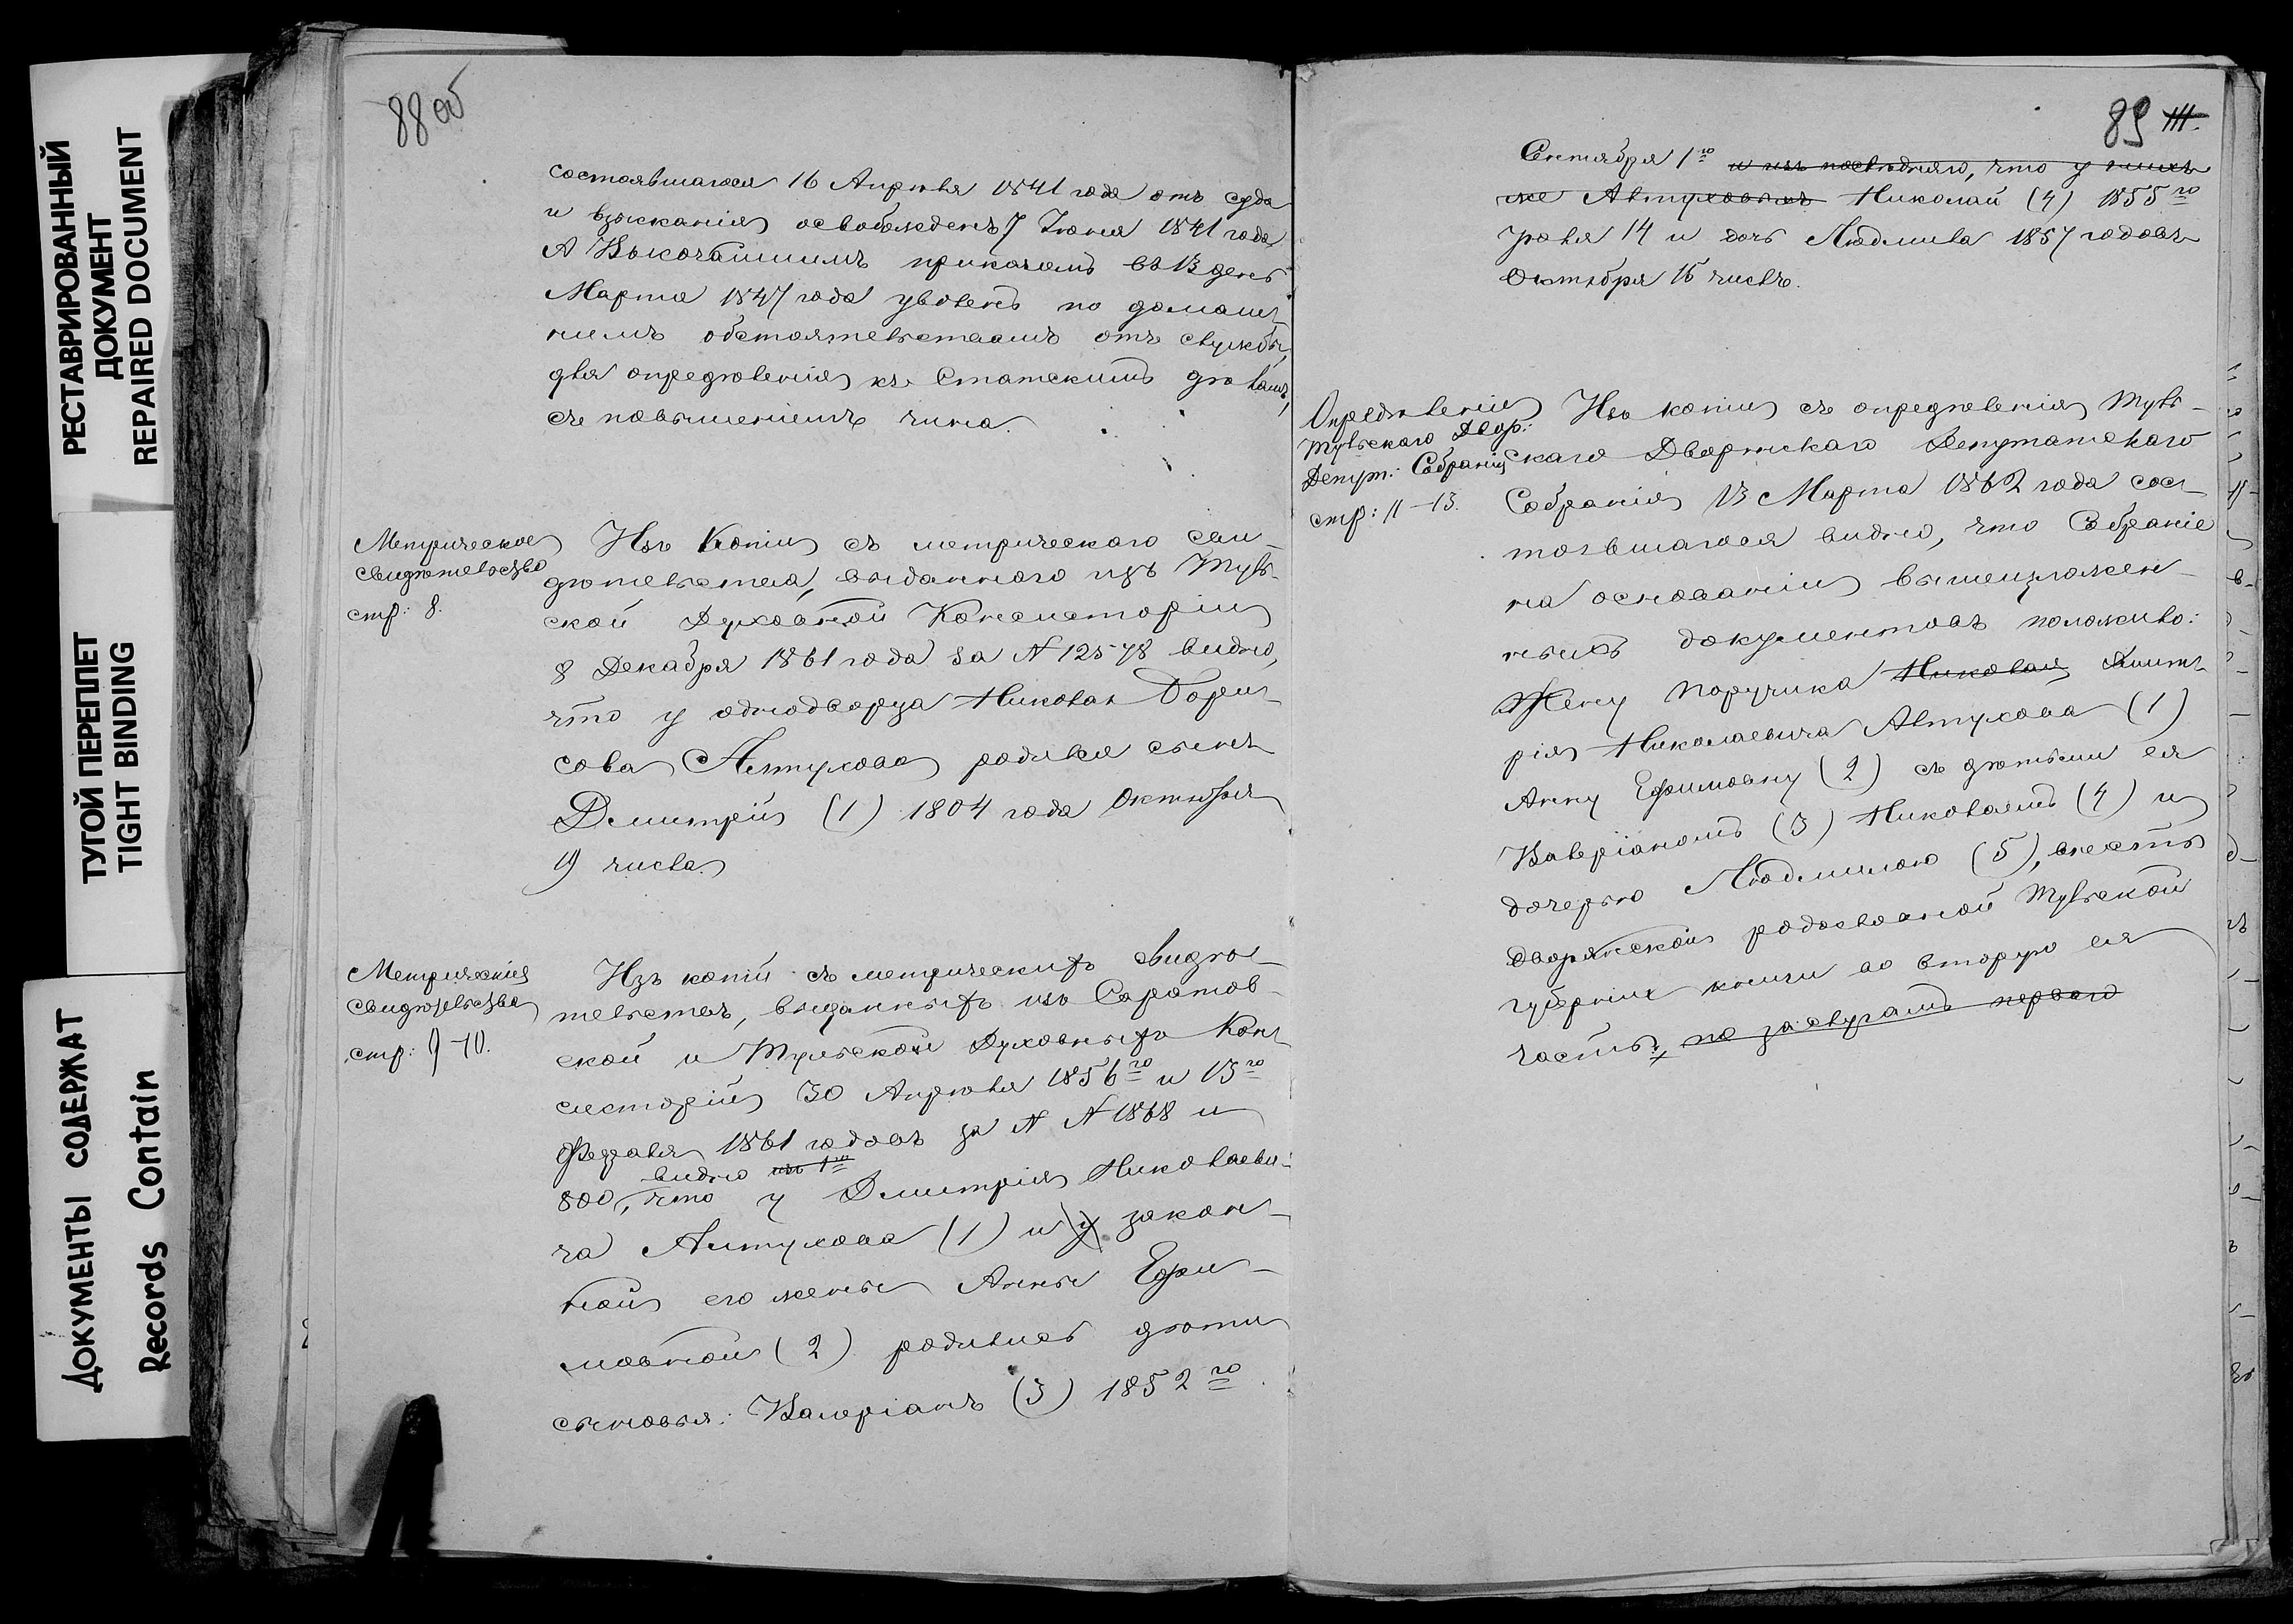 РЕСТАВРИРОВАННЫЙ
ДОКУМЕНТ
REPAIRED DOCUMENT
ТУГОЙ ПЕРЕПЛЕТ
TIGHT BINDING
ДОКУМЕНТЫ СОДЕРЖАТ
Records Contain
88 об
состоявшагося 16 Апрѣля 1841 года отъ суда
и взысканія освобожденъ 7 Іюня 1841 года
А Высочайшимъ приказомъ въ 13 день
Марта 1847 года уволенъ по домаш-
нимъ обстоятельствамъ отъ службы,
для опредѣленія къ Статскимъ дѣламъ,
съ повышеніемъ чина.
Метрическое
свидѣтельство
стр: 8.
Изъ Копіи съ метрическаго сви-
дѣтельства, выданнаго изъ Туль-
ской Духовной Консисторіи
8 Декабря 1861 года за N 12578 видно,
что у однодворца Николая Бори-
сова Автухова родился сынъ
Димитрій (1) 1804 года Октября
19 числа.
Метрическія
свидѣтельства
стр: 9-10.
Изъ копій съ метрическихъ свидѣ-
тельствъ, выданныхъ изъ Саратов-
ской и Тульской Духовныхъ Кон-
систорій 30 Апрѣля 1856го и 13го
Февраля 1861 годовъ за N N 1868 и
видно изъ 1го
800, что у Дмитрія Николаеви-
ча Автухова (1) и у закон-
ной его жены Анны Ефи-
мовной (2) родились дѣти
сыновья: Валеріанъ (3) 1852го
89 111.
Сентября 1го и изъ послѣдняго, что у тѣхъ
же Автуховыхъ Николай (4) 1855го
14 и дочь Людмила 1857 годовъ
Октября 15 числъ.
Опредѣленіе
Тульскаго Двор:
Депут: Собранія
стр: 11-13.
Изъ копіи съ опредѣленія Туль-
скаго Дворянскаго Депутатскаго
Собранія 13 Марта 1862 года сос-
тоявшагося видно, что Собраніе
на основаніи вышеизложен-
ныхъ документовъ положило:
Жену Поручика Николая Дмит-
рія Николаевича Автухова (1)
Анну Ефимовну (2) съ дѣтьми ея
Валеріаномъ (3) Николаемъ (4) и
дочерью Людмилою (5), внести
дворянской родословной Тульской
губерніи книги во вторую ея
часть, по заслугамъ перваго